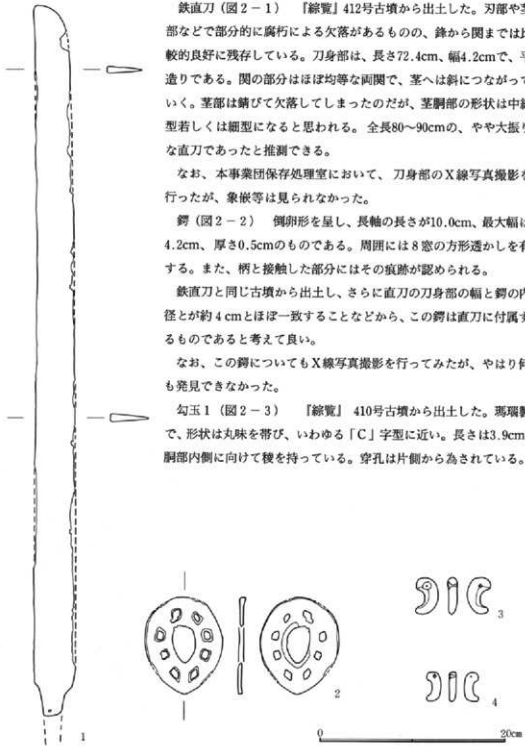 鉄直刀(図2-1) 『綜覧』412号古墳から出土した。刃部や茎
部などで部分的に腐朽による欠落があるものの、鋒から関までは比
較的良好に残存している。刀身部は、長さ72.4cm、幅4.2cmで、平
造りである。関の部分はほぼ均等な両関で、茎へは斜につながって
いく。茎部は錆びて欠落してしまったのだが、茎胴部の形状は中細
型若しくは細型になると思われる。全長80〜90cmの、やや大振り
な直刀であったと推測できる。
なお、本事業団保存処理室において、刀身部のX線写真撮影を
行ったが、象嵌等は見られなかった。
鍔(図2-2) 倒卵形を呈し、長軸の長さが10.0cm、最大幅は
4.2cm、厚さ0.5cmのものである。周囲には8窓の方形透かしを有
する。また、柄と接触した部分にはその痕跡が認められる。
鉄直刀と同じ古墳から出土し、さらに直刀の刀身部の幅と鍔の内
径とが約4cmとほぼ一致することなどから、この鍔は直刀に付属す
るものであると考えて良い。
なお、この鍔についてもX線写真撮影を行ってみたが、やはり何
も発見できなかった。
勾玉1(図2-3) 『綜覧』410号古墳から出土した。瑪瑙製
で、形状は丸味を帯び、いわゆる「C」字型に近い。長さは3.9cm
胴部内側に向けて稜を持っている。穿孔は片側から為されている。
1
2
3
4
0 20cm